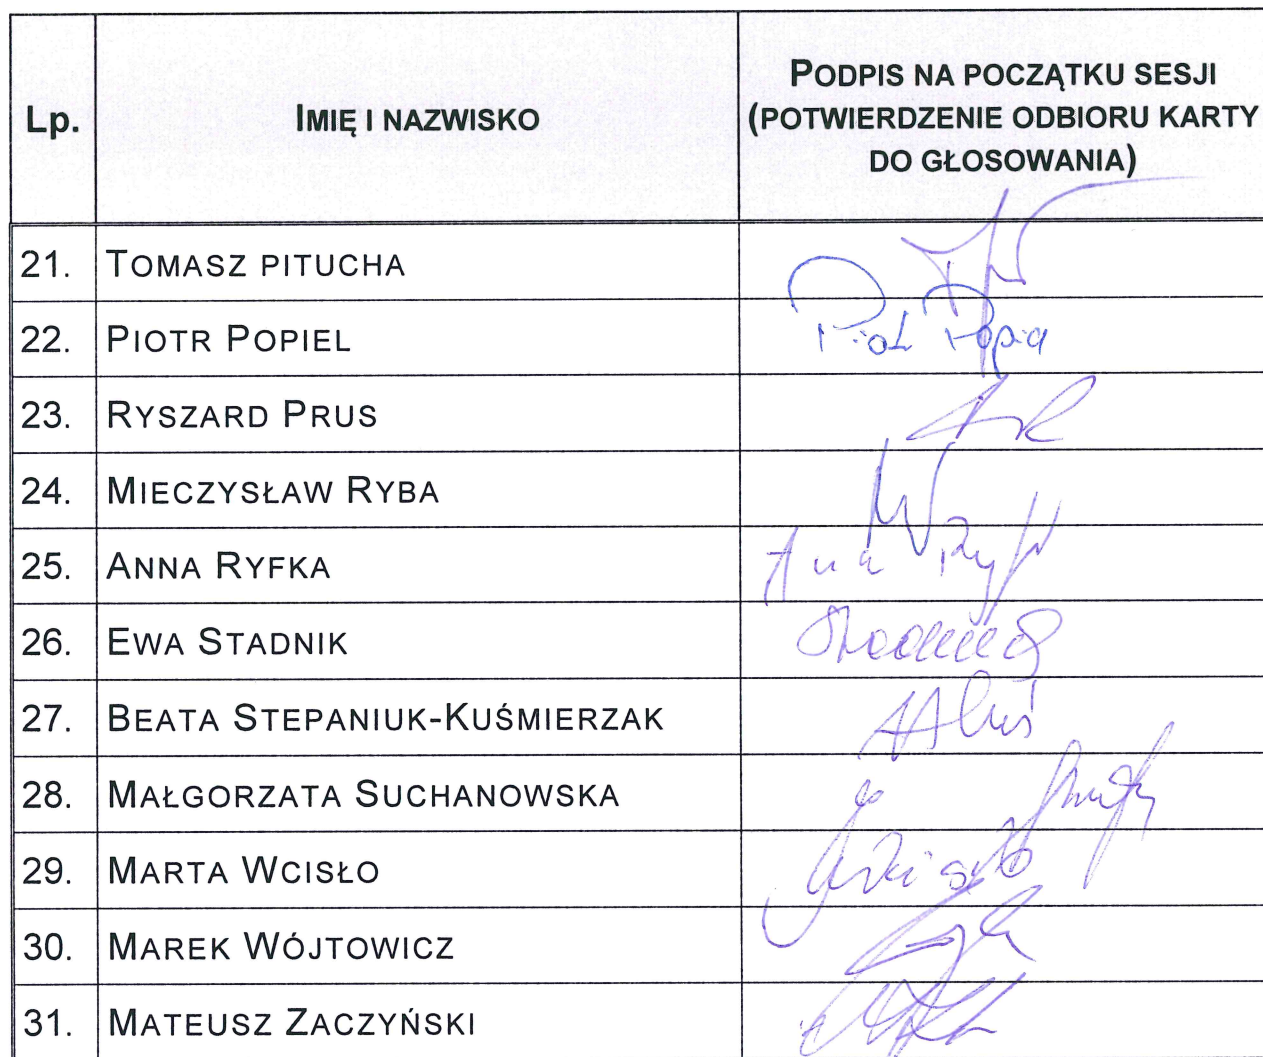 Lp.
IMIĘ I NAZWISKO
PODPIS NA POCZĄTKU SESJI
(POTWIERDZENIE ODBIORU KARTY
DO GŁOSOWANIA)
21. TOMASZ PITUCHA
22. PIOTR POPIEL Piotr Popiel
23. RYSZARD PRUS
24. MIECZYSŁAW RYBA
25. ANNA RYFKA
26. EWA STADNIK
27. BEATA STEPANIUK-KUŚMIERZAK
28. MAŁGORZATA SUCHANOWSKA
29. MARTA WCISŁO
30. MAREK WÓJTOWICZ
31. MATEUSZ ZACZYŃSKI